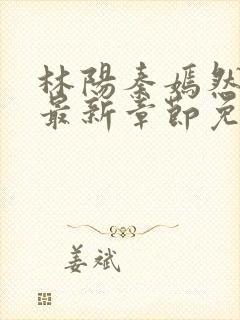 林陽秦嫣然
最新章節免
姜斌